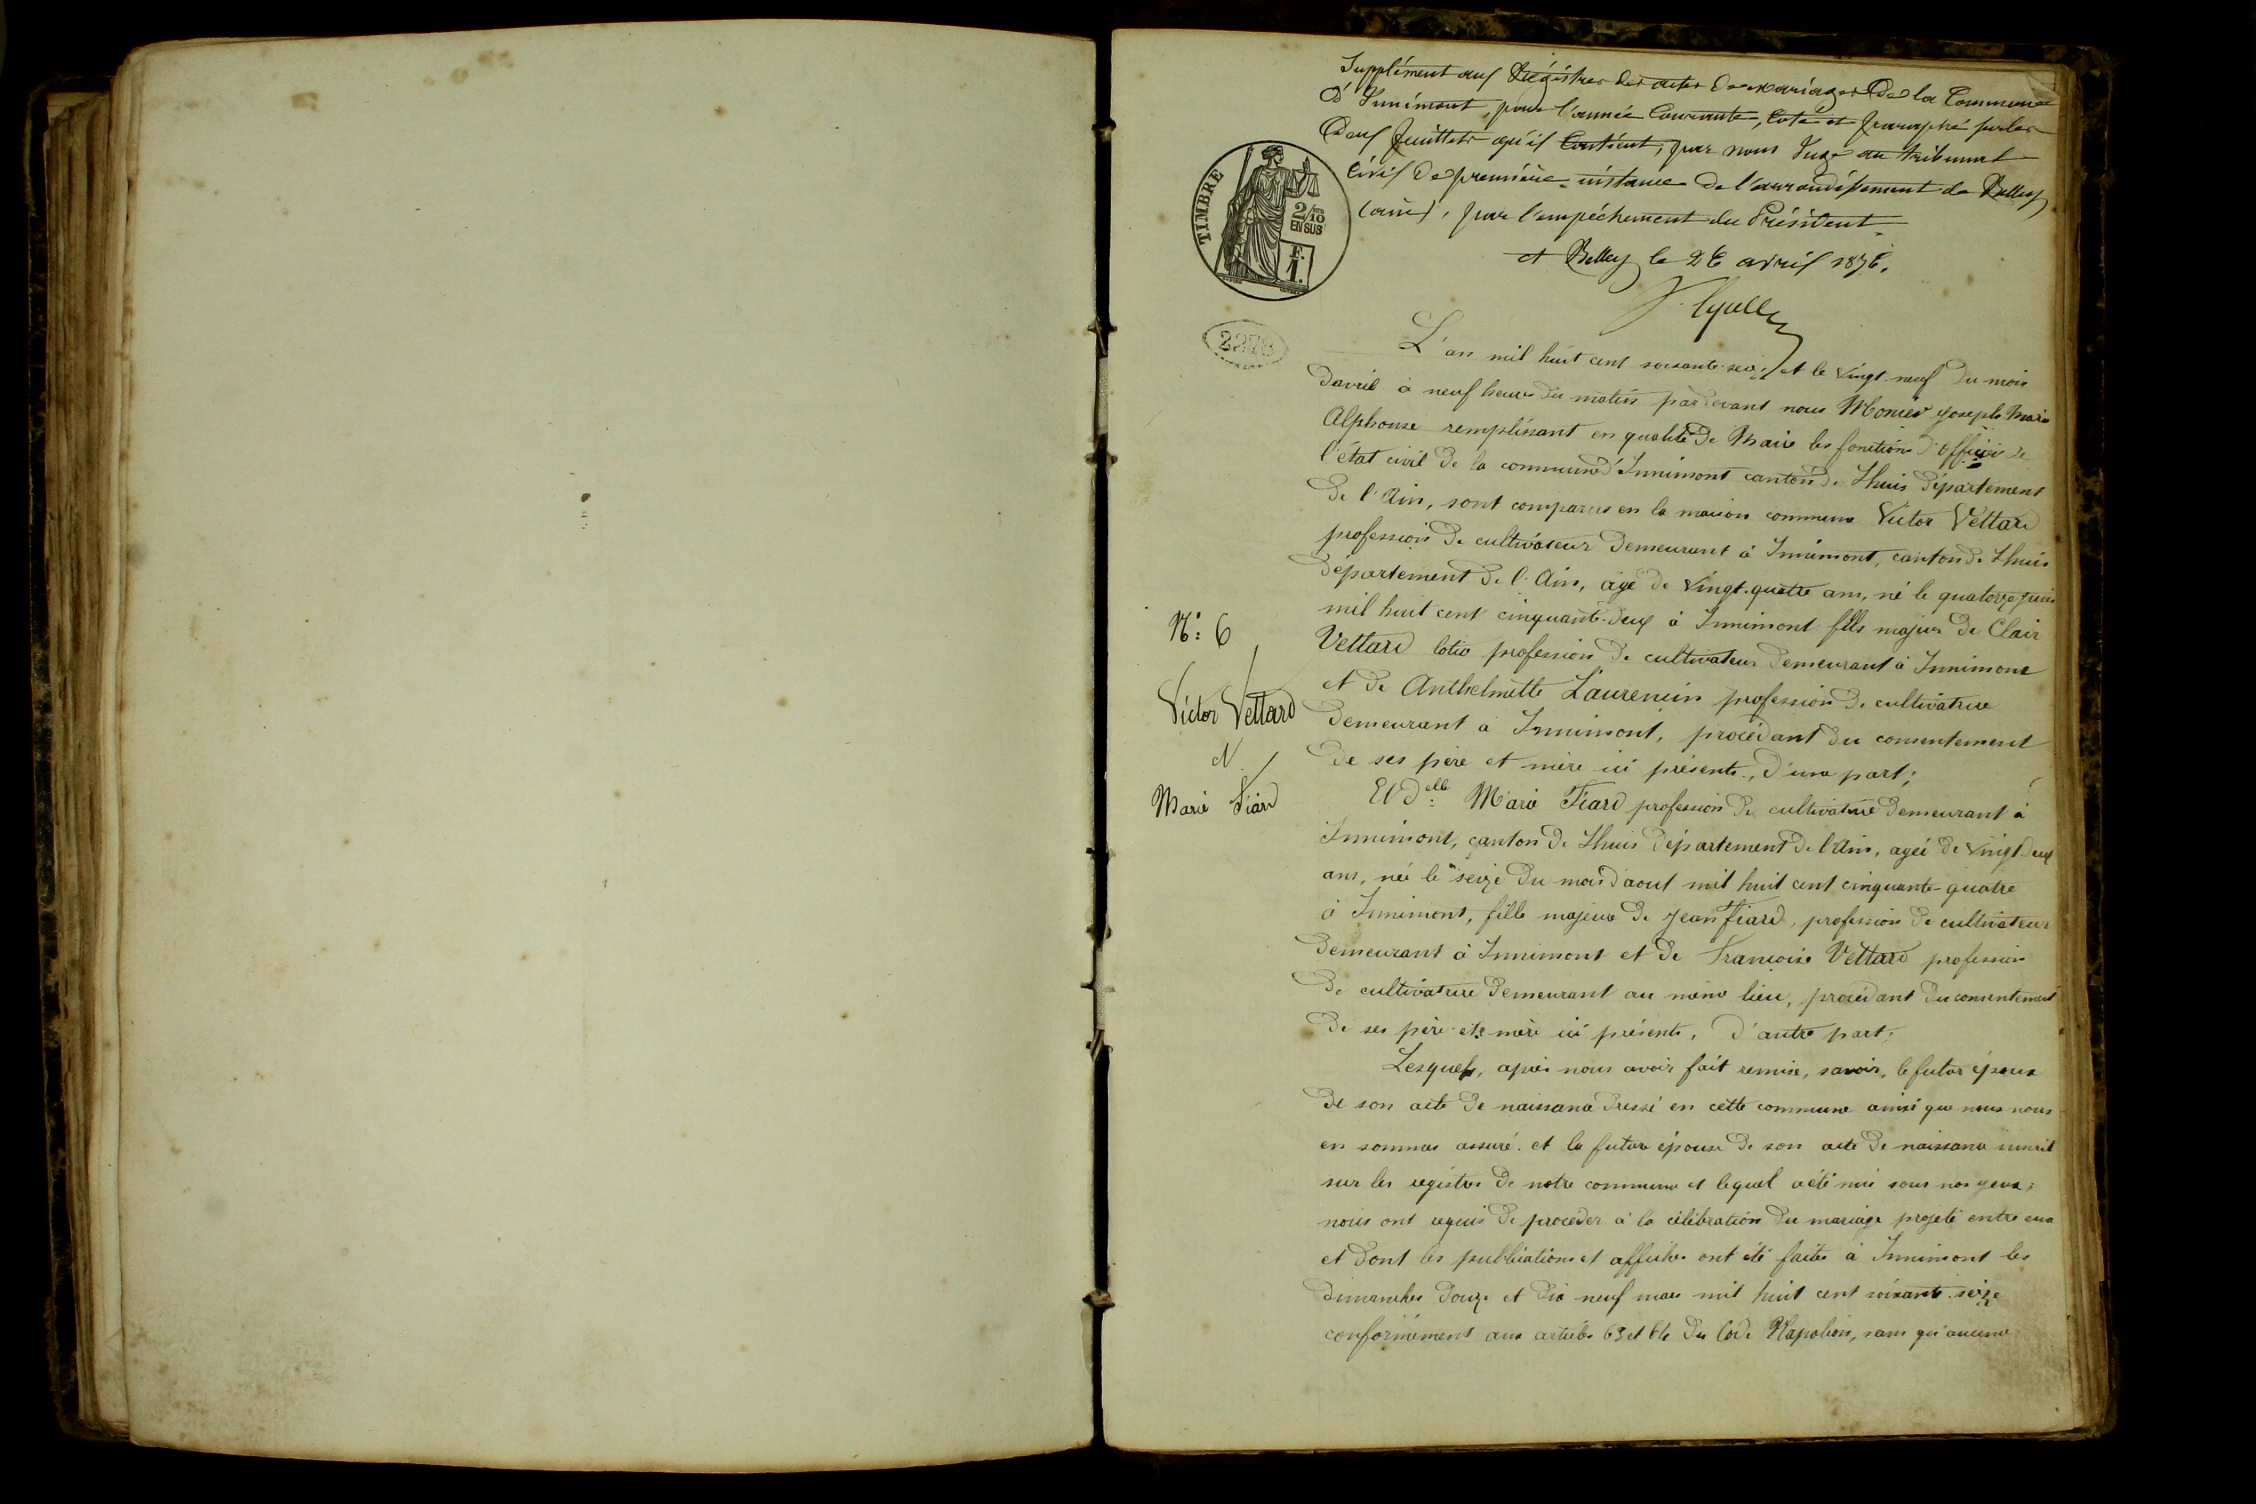 Supplément aux Régistres des actes de mariages de la Commune
d'Innimont, pour l'année Courante, Coté et paraphé sur les
deux feuillets qu'il Contient, par nous Juge au tribunal
Civil de première instance de l'arrondissement de Belley
(ain), par l'empêchement du Président.
TIMBRE
2/10
EN SUS
F.
1.
à Belley le 26 avril 1876.
2278
L'an mil huit cent soixante-seize et le vingt-neuf du mois
d'avril à neuf heures du matin pardevant nous Monier Joseph Marie
Alphonse remplissant en qualité de Maire les fonctions d'officier de
l'état civil de la commune d'Innimont canton de Lhuis département
de l'Ain, sont comparus en la maison commune Victor Vettard
profession de cultivateur demeurant à Innimont, canton de Lhuis
département de l'Ain, âgé de vingt-quatre ans, né le quatorze juin
mil huit cent cinquante-deux à Innimont fils majeur de Clair
N°: 6
Vettard profession de cultivateur demeurant à Innimont
et de Anthelmette Laurencin profession de cultivatrice
Victor Vettard
demeurant à Innimont, procédant du consentement
et
de ses père et mère ici présents, d'une part;
Marie Fiard
Et delle Marie Fiard profession de cultivatrice demeurant à
Innimont, canton de Lhuis département de l'Ain, agée de vingt-deux
ans, née le seize du mois d'aout mil huit cent cinquante-quatre
à Innimont, fille majeure de Jean Fiard, profession de cultivateur
demeurant à Innimont et de Françoise Vettard profession
de cultivatrice demeurant au même lieu, procédant du consentement
de ses père et mère ici présents, d'autre part;
Lesquels, après nous avoir fait remise, savoir, le futur époux
de son acte de naissance dressé en cette commune ainsi que nous nous
en sommes assuré. et la future épouse de son acte de naissance inscrit
sur les registres de notre commune et lequel a été mis sous nos yeux;
nous ont requis de procéder à la célébration du mariage projeté entre eux
et dont les publications et affiches ont été faites à Innimont les
dimanches douze et dix neuf mars mil huit cent soixante-seize
conformément aux articles 63 et 64 du Code Napoléon, sans qu'aucune